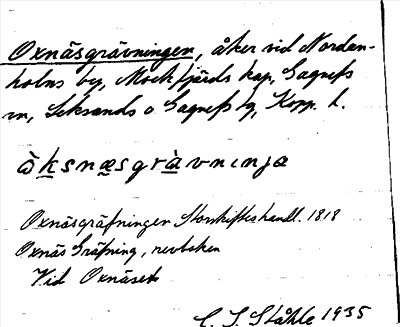 Oxnäsgrävningen, åker vid Norden-
holns by, Mockfjärds kap. Gagnefs
sn, Leksands o Gagnefs tg, Kopp. l.
àksnæsgràvnınja
Oxnäsgräfningen Storskifteshandl. 1818
Oxnäs Gräfning, revboken
Vid Oxnäset
C. I. Ståhle 1935